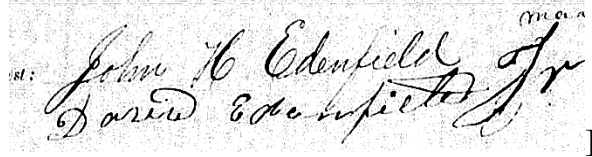 mar
st: John H Edenfield Jr
David Edenfield